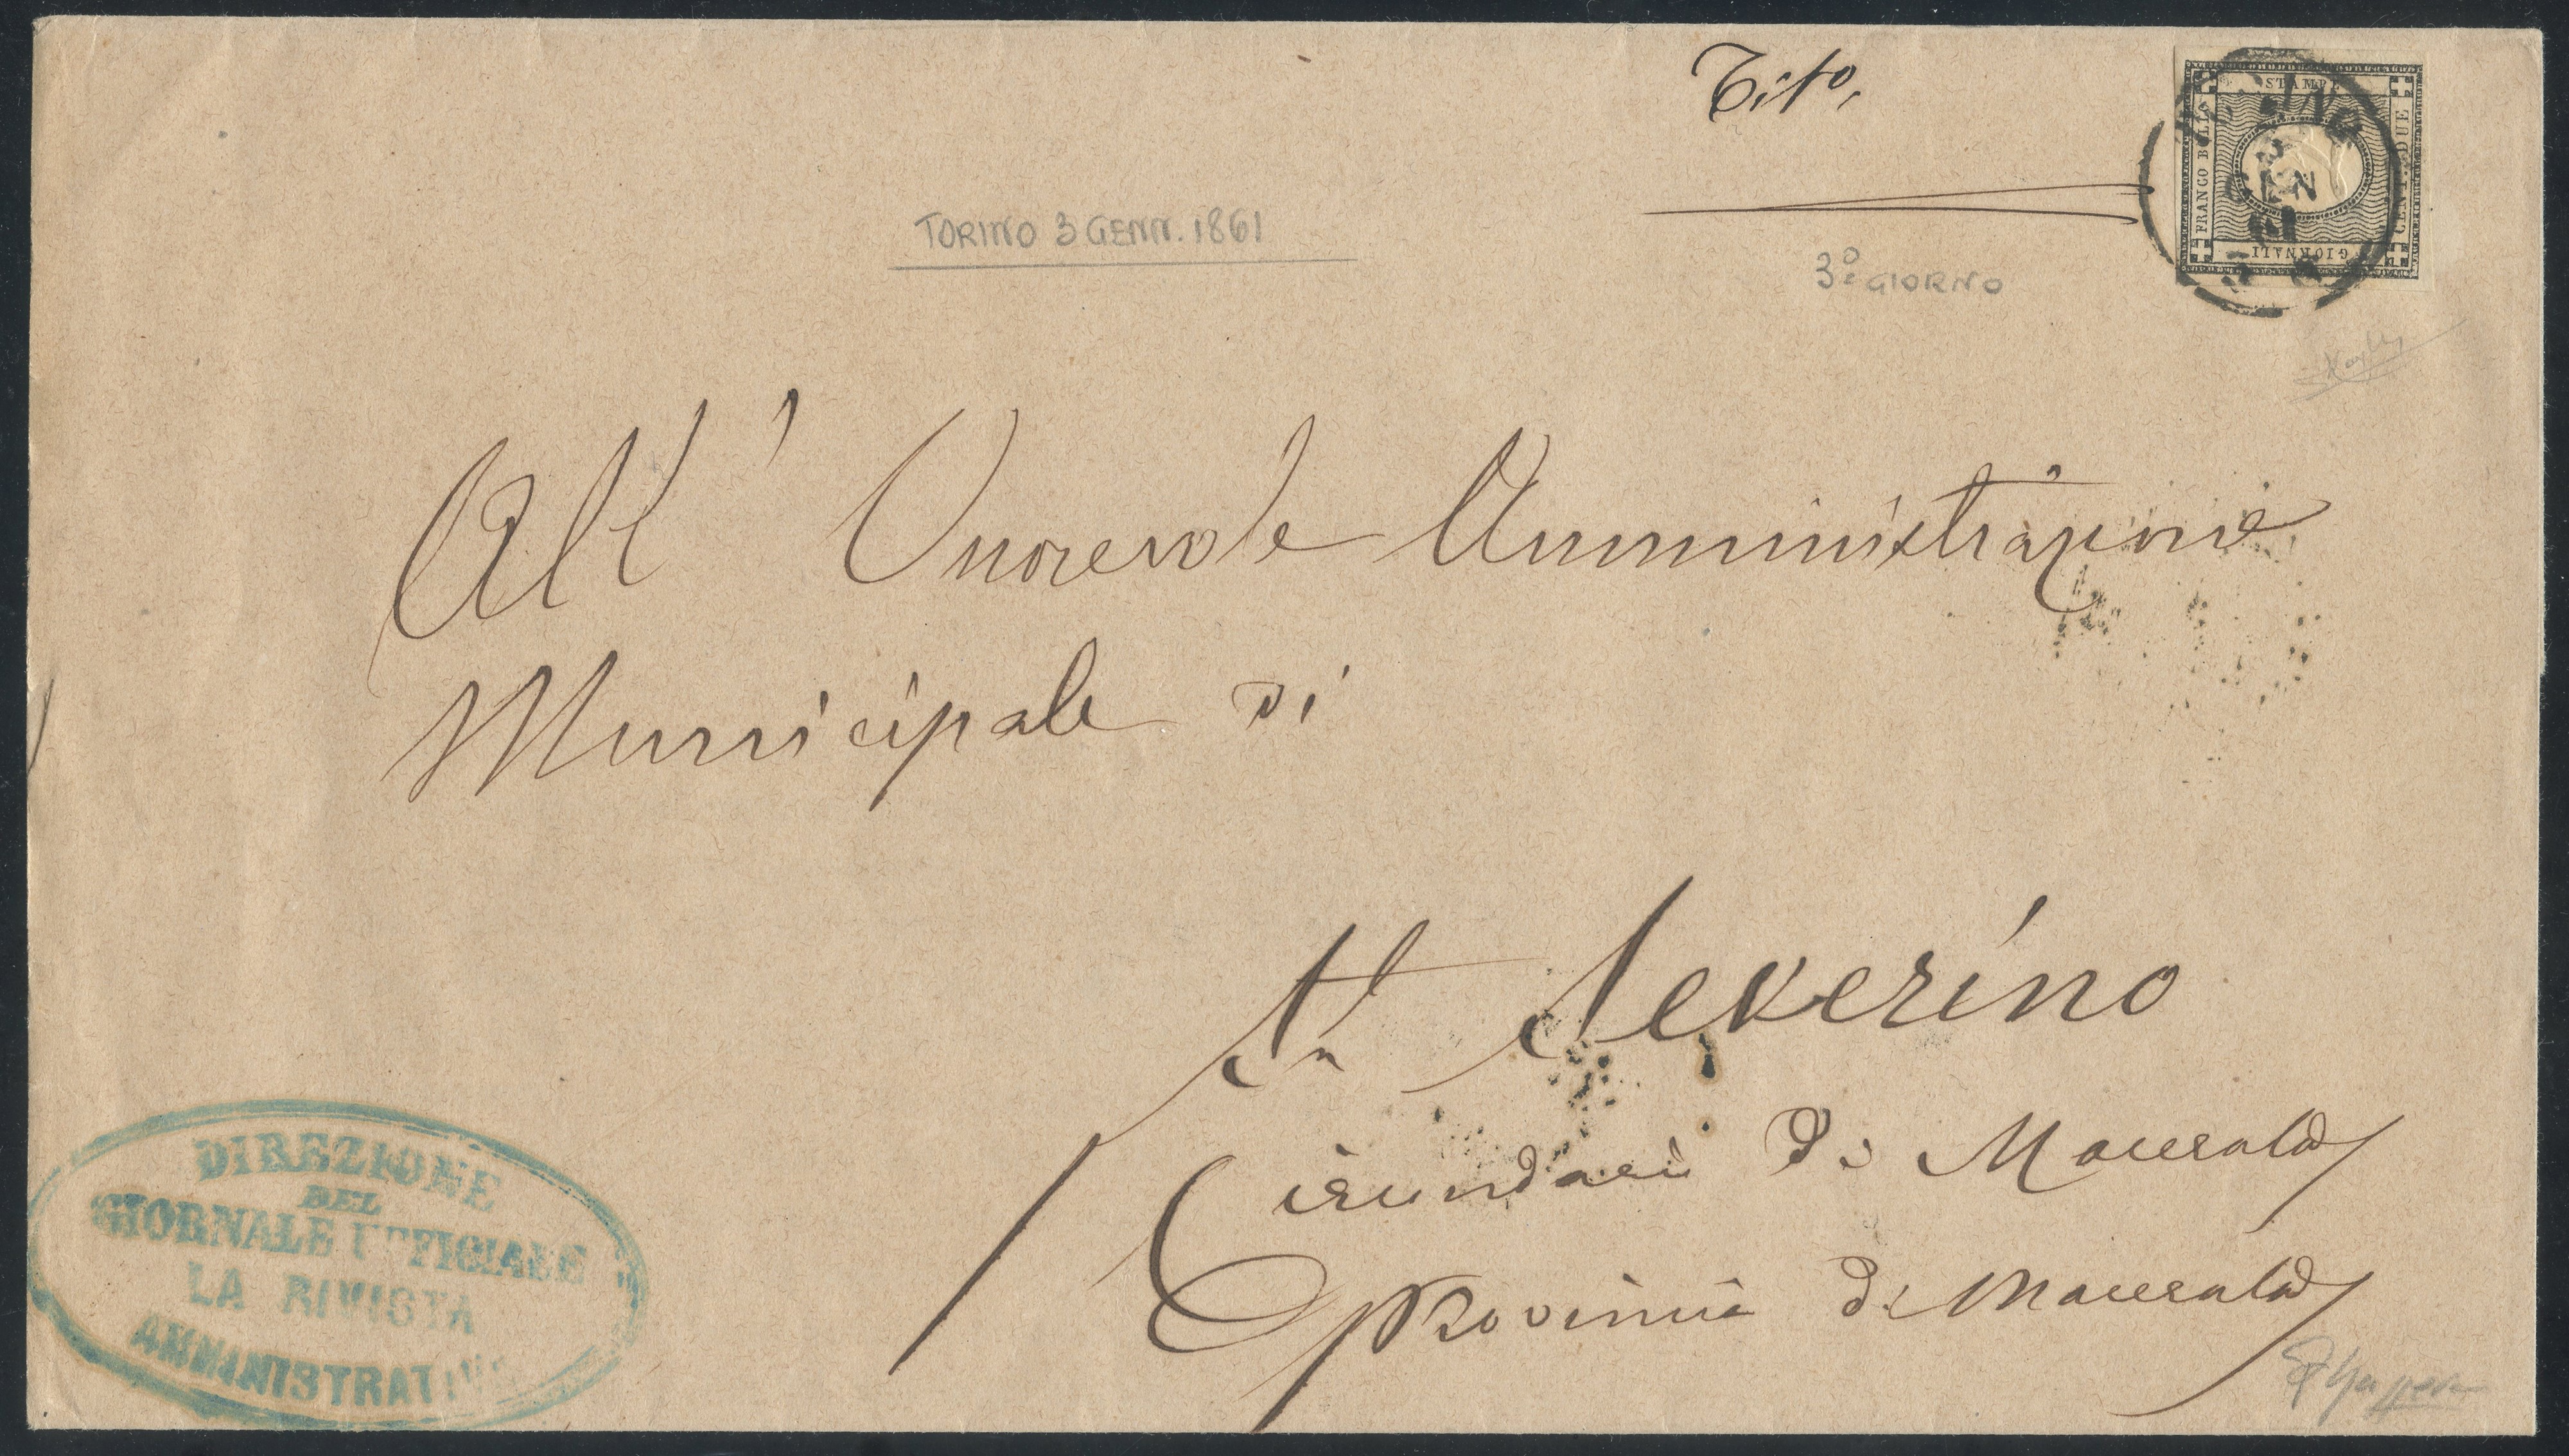 Tito,
STAMPE
FRANCO BOLLO
CENT. DUE
GIORNALI
3
GEN
61
TORINO 3 GENN. 1861
3° GIORNO
All' Onorevole Amministrazione
Municipale di
Sn Severino
Circundario Di Macerata
Provincia di Macerata
DIREZIONE
DEL
GIORNALE UFFICIALE
LA RIVISTA
AMMINISTRATIVA